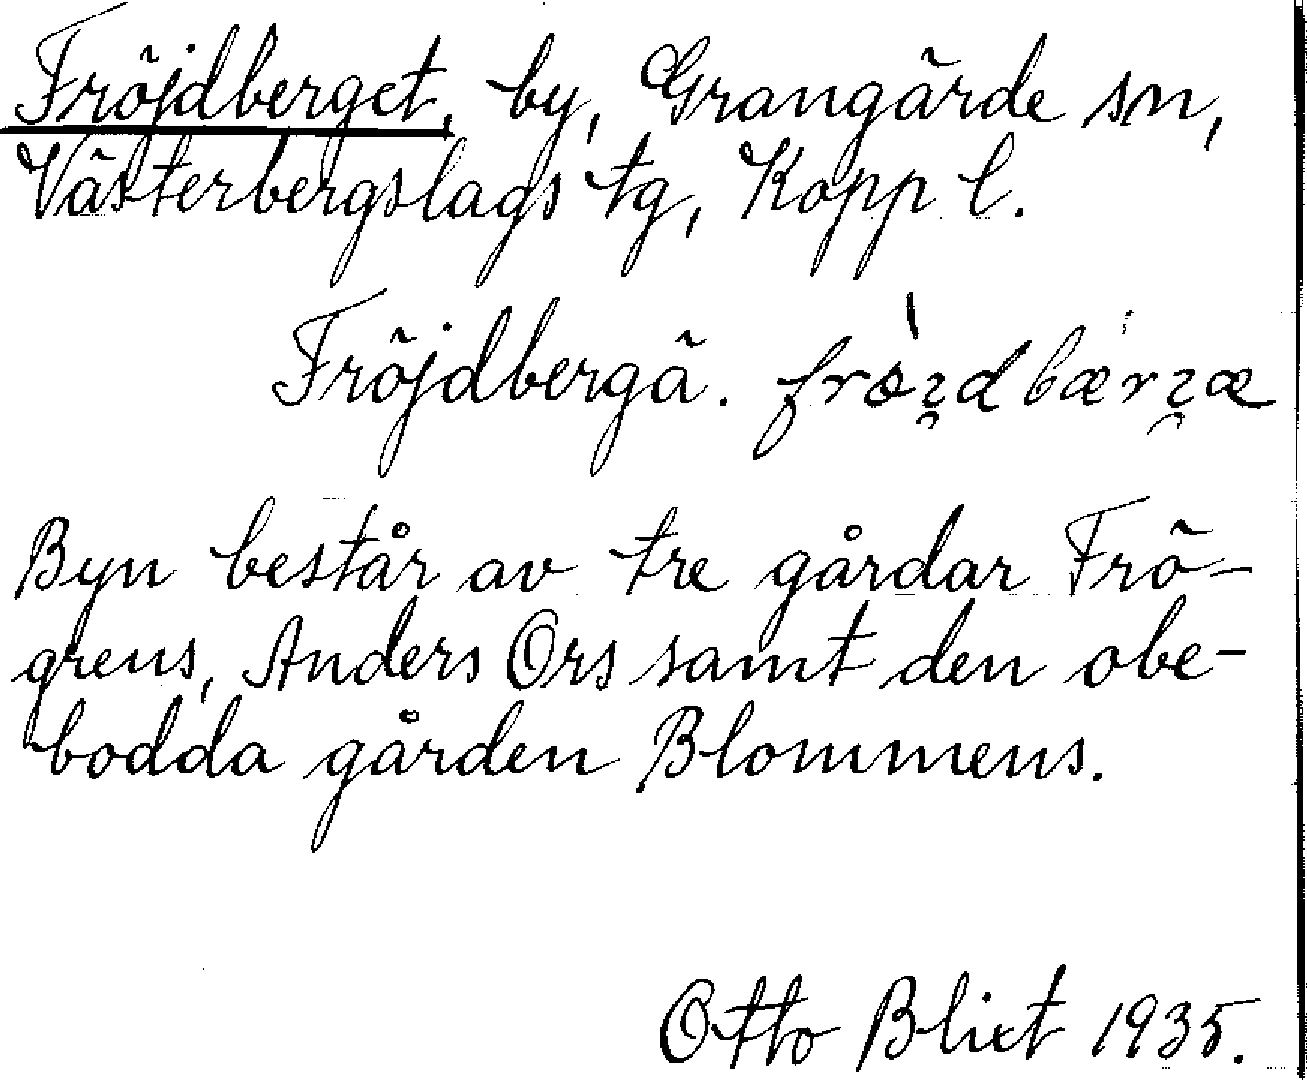 Fröjdberget, by, Grangärde sn,
Västerbergslags tg, Kopp l.
Fröjdbergä.
Byn består av tre gårdar Frö-
grens, Anders Ors samt den obe-
bodda gården Blommens.
Otto Blixt 1935.